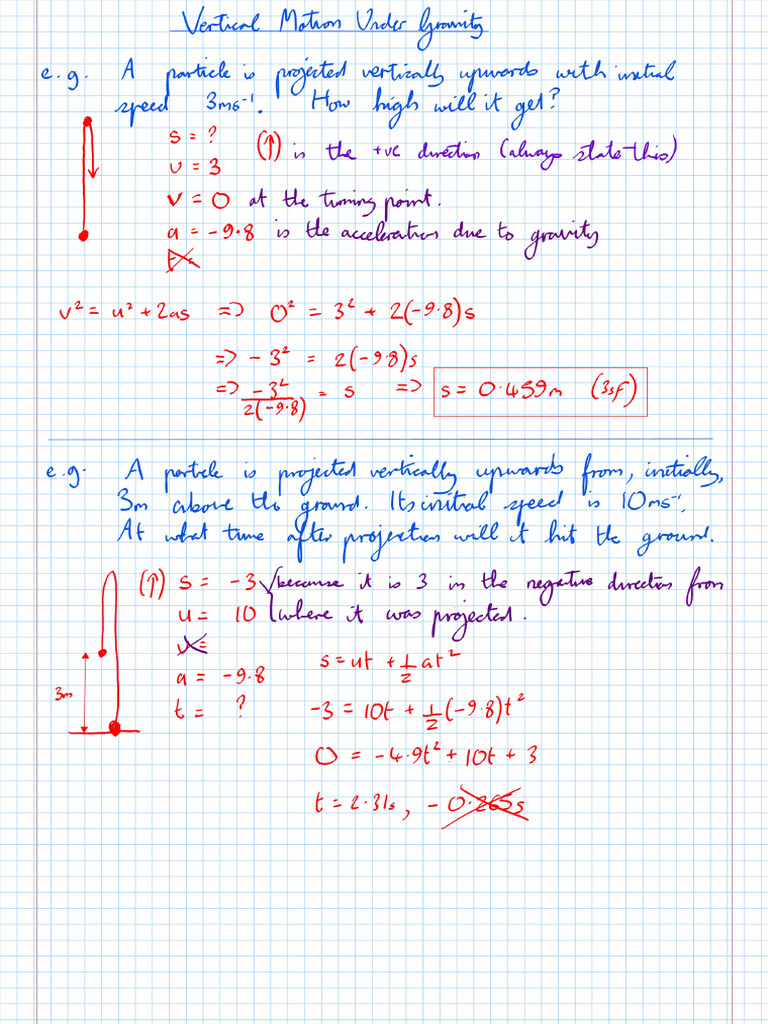 Vertical Motion Under Gravity
e.g. A particle is projected vertically upwards with initial
speed 3ms⁻¹. How high will it get?
s = ? (↑) is the +ve direction (always state this)
u = 3
v = 0 at the turning point.
a = -9.8 is the acceleration due to gravity
t =
v² = u² + 2as => 0² = 3² + 2(-9.8)s
=> -3² = 2(-9.8)s
=> -3²/2(-9.8) = s => s = 0.459m (3sf)
e.g. A particle is projected vertically upwards from, initially,
3m above the ground. Its initial speed is 10ms⁻¹.
At what time after projection will it hit the ground.
(↑) s = -3 (because it is 3 in the negative direction from
u = 10 where it was projected.
v =
a = -9.8
t = ?
3m
s = ut + 1/2 at²
-3 = 10t + 1/2 (-9.8)t²
0 = -4.9t² + 10t + 3
t = 2.31s, -0.265s